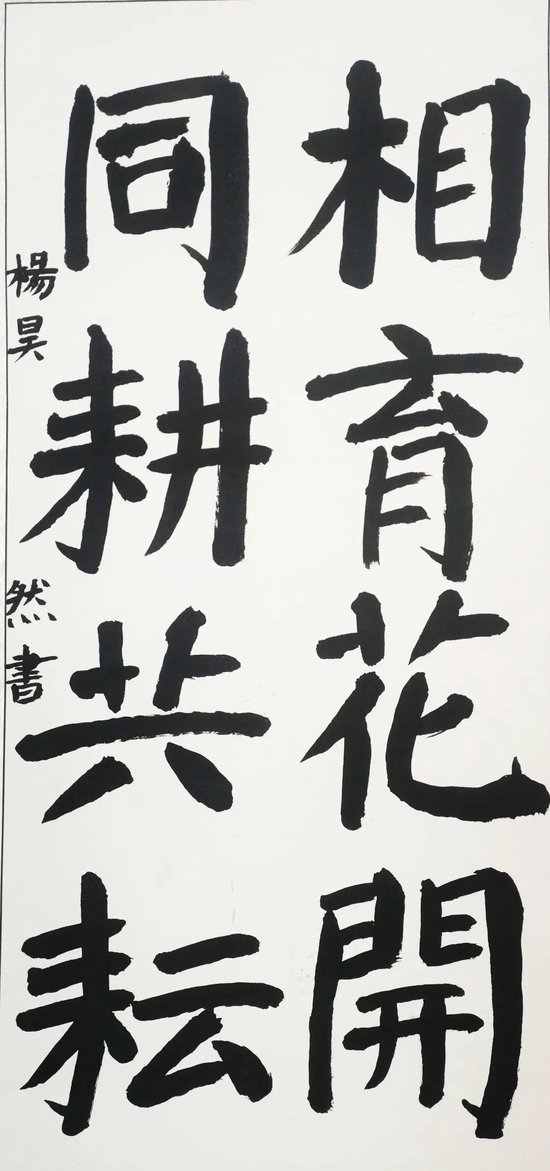 相育花開
同耕共耘
楊昊然書